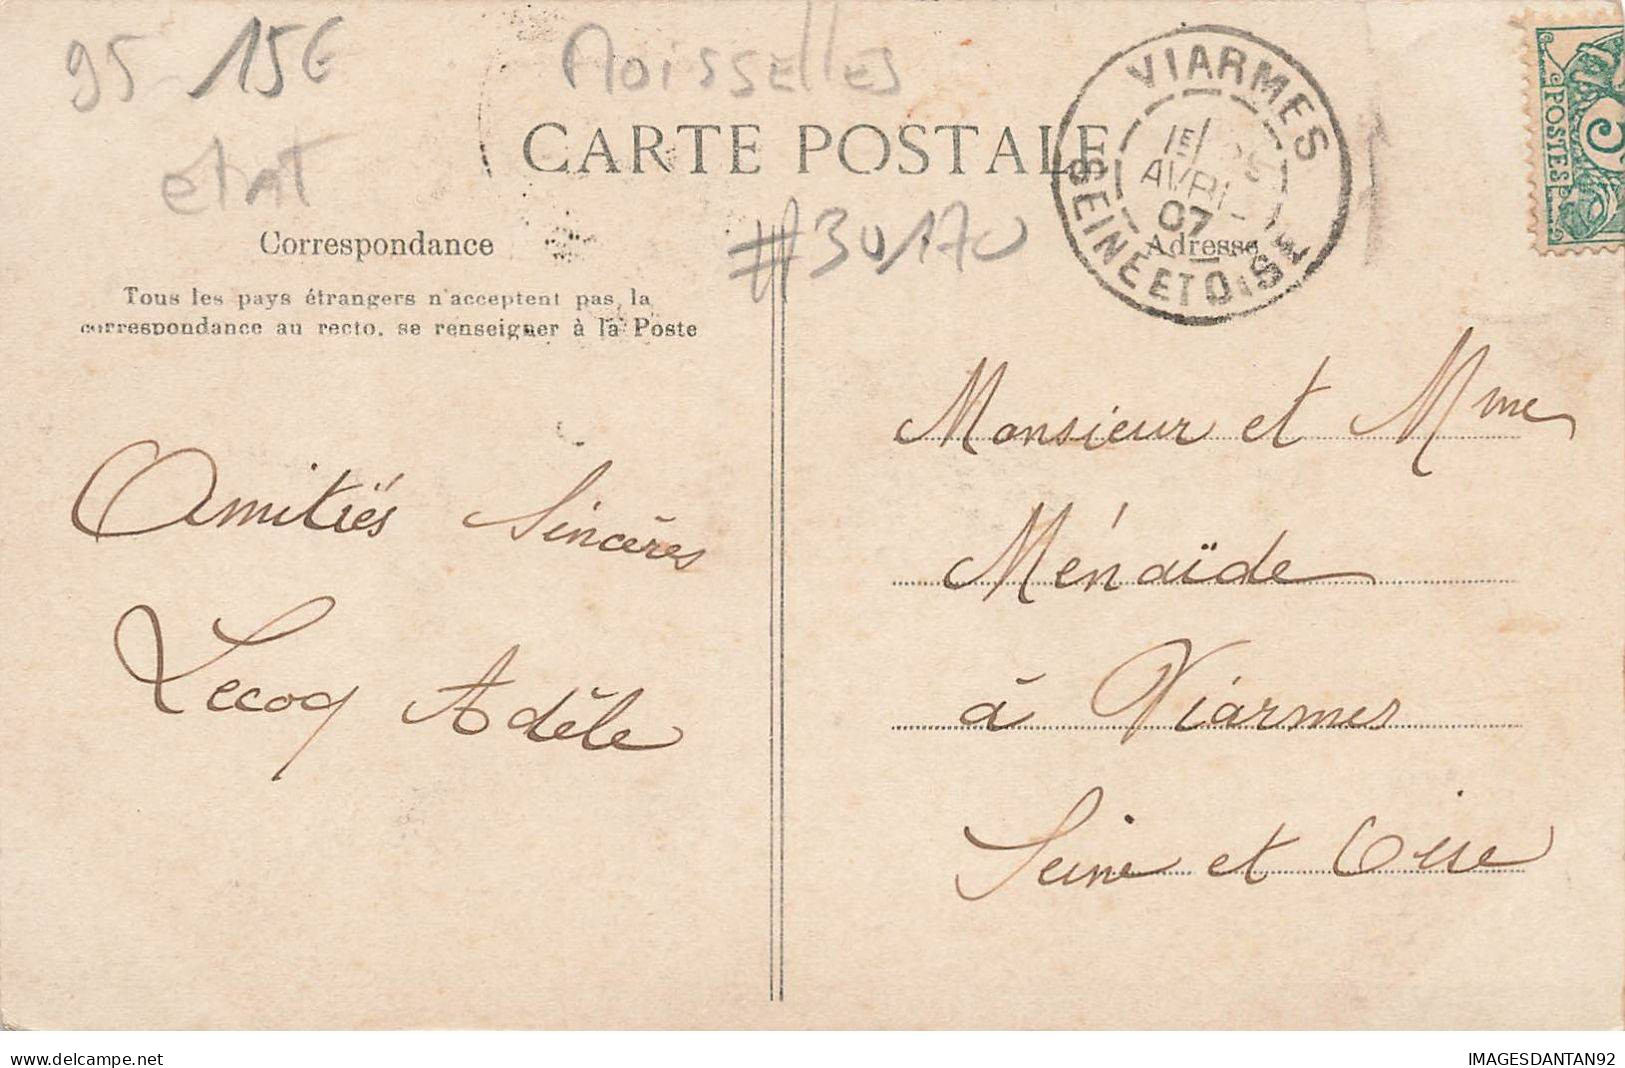 95 15€ Moisselles
etat
CARTE POSTALE
#30170
VIARMES
1E
AVRIL
07
SEINE ET OISE
POSTES
5
Correspondance
Adresse
Tous les pays étrangers n'acceptent pas la
correspondance au recto, se renseigner à la Poste
Monsieur et Mme
Amitiés Sincères
Ménaïde
Lecoq Adèle
à Viarmes
Seine et Oise
delcampe.net
IMAGESDANTAN92